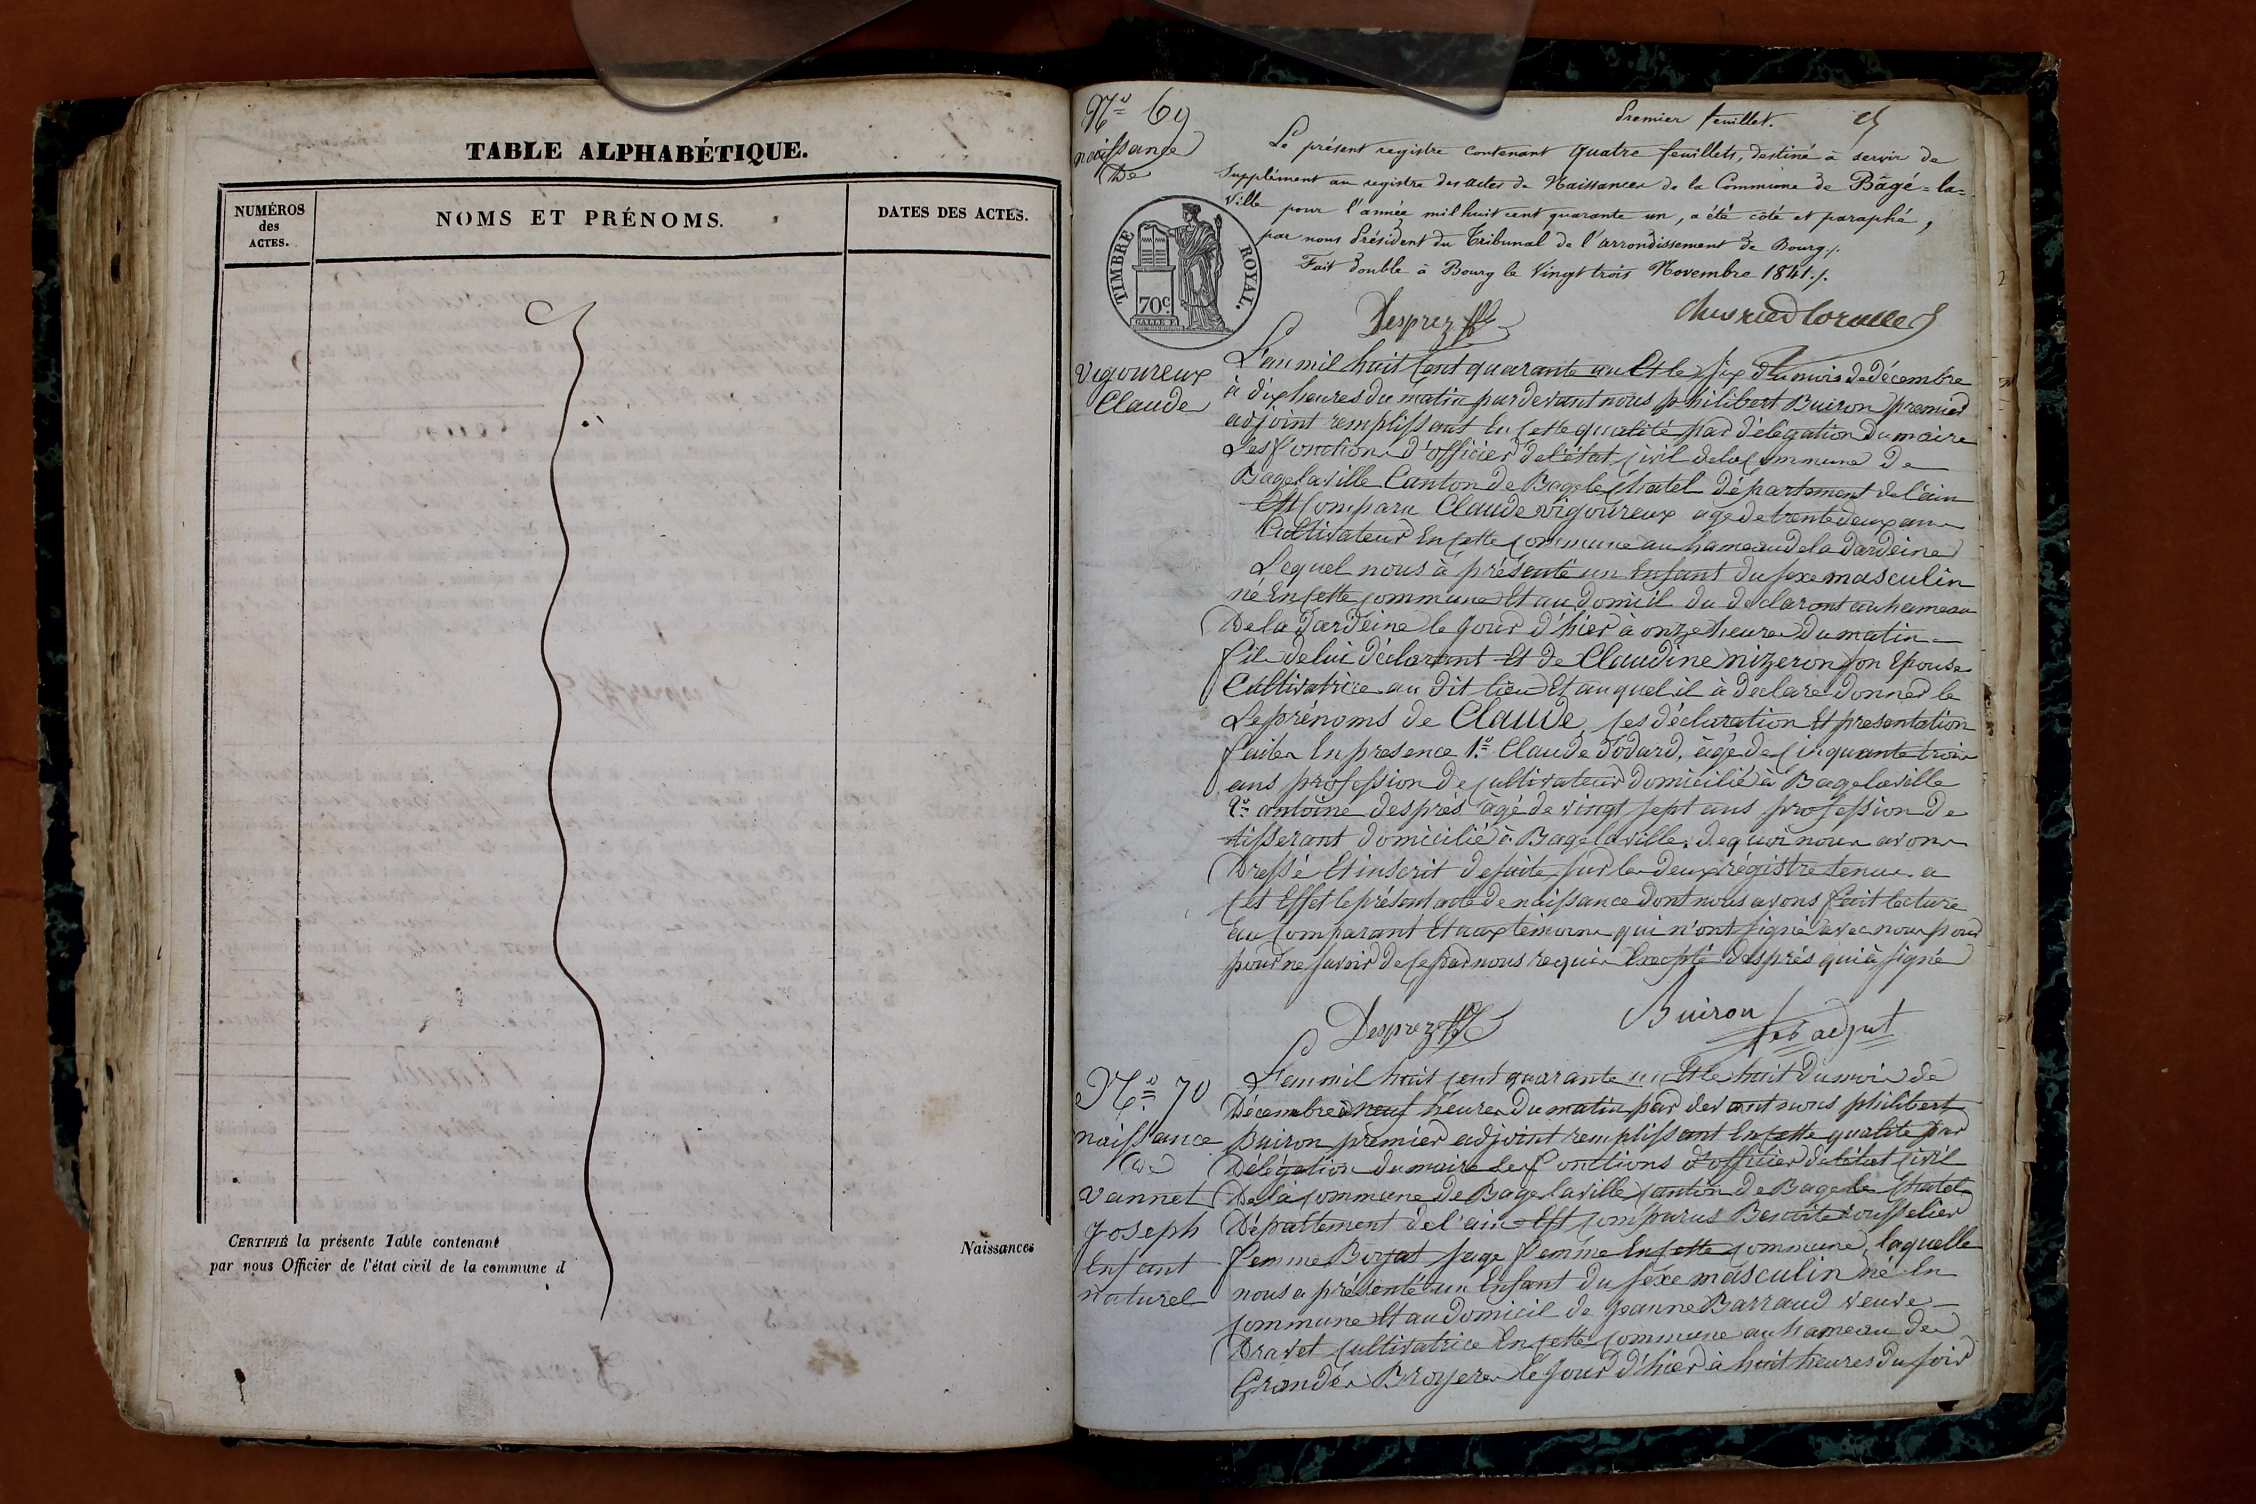 TABLE ALPHABÉTIQUE.
NUMÉROS
des
ACTES.
NOMS ET PRÉNOMS.
DATES DES ACTES.
CERTIFIÉ la présente Table contenant
Naissances
par nous Officier de l'état civil de la commune d
N.º 69
naissance
De
Vigoureux
Claude
Premier feuillet.
Le présent registre contenant quatre feuillets, destiné à servir de
Supplément au registre des actes de Naissances de la Commune de Bâgé-la-
Ville pour l'année mil huit cent quarante un, a été coté et paraphé,
par nous Président du Tribunal de l'arrondissement de Bourg ./.
Fait double à Bourg le Vingt trois Novembre 1841 ./.
TIMBRE ROYAL.
70c
Desprez
L'an mil huit Cent quarante un Et le six du mois de décembre
à dix heures du matin par devant nous philibert Buiron premier
adjoint remplissant En cette qualité par délégation du maire
Les fonctions d'officier de l'état Civil de la Commune de
Bagelaville Canton de Bagelechatel département de l'ain
Est Comparu Claude vigoureux agé de trente deux ans
Cultivateur En cette commune au hameau de la Dardeine
Lequel nous à présenté un Enfant du sexe masculin
né En cette commune Et au domicil du declarant au hameau
De la Dardeine le jour d'hier à onze heures du matin
fils de lui déclarant Et de Claudine nizeron son Epouse
Cultivatrice au dit lieu Et auquel il à declaré donner le
Le prénoms de Claude ces déclaration Et presentation
faites En presence 1.º Claude Dodard, âgé de cinquante trois
ans profession de cultivateur domicilié à Bagelaville
2.º antoine després âgé de vingt sept ans profession de
tisserant domicilié à Bagelaville. de quoi nous avons
Dressé Et inscrit de suite sur les deux régistre tenus a
cet Effet le présent acte de naissance dont nous avons fait lecture
au Comparant Et aux témoins qui n'ont signé avec nous pour
pour ne savoir de ce par nous requis Excepté després qui à signé
Desprez
Buiron
adjut
N.º 70
naissance
de
vannet
Joseph
Enfant
naturel
L'an mil huit cent quarante un Et le huit du mois de
Décembre à neuf heures du matin par devant nous philibert
Buiron premier adjoint remplissant En cette qualité par
Délégation du maire Les fonctions d'officier de l'état Civil
De la commune de Bagelaville canton de Bagele chatel
Département de l'ain Est comparus Benoite rousselier
femme Borjat sage femme En cette commune, laquelle
nous a présenté un Enfant du sexe masculin né En
commune Et au domicil de Jeanne Barraud veuve
Dravet cultivatrice En cette commune au hameau de
Grandes Broyeres le jour d'hier à huit heures du soir